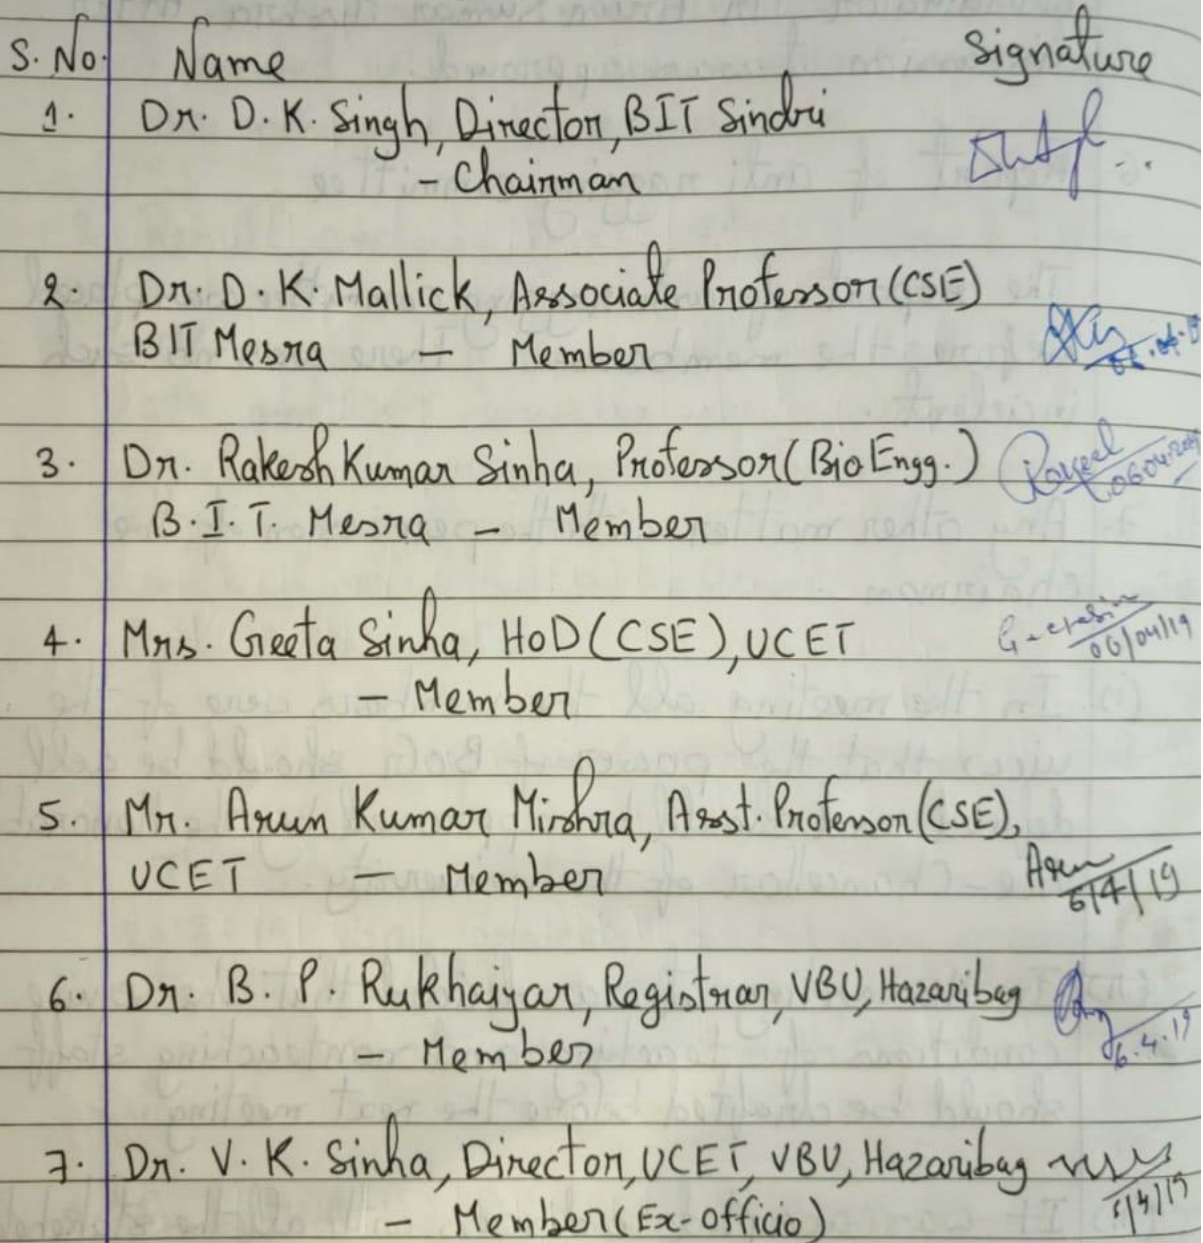 S. No. Name Signature
1. Dr. D. K. Singh, Director, BIT Sindri
- Chairman
2. Dr. D. K. Mallick, Associate Professor (CSE)
BIT Mesra - Member
3. Dr. Rakesh Kumar Sinha, Professor (Bio Engg.)
B. I. T. Mesra - Member
06.04.2019
4. Mrs. Geeta Sinha, HoD (CSE), UCET
06/04/19
- Member
5. Mr. Arun Kumar Mishra, Asst. Professor (CSE),
UCET - Member Arun
6/4/19
6. Dr. B. P. Rukhaiyar, Registrar, VBU, Hazaribag
- Member 6.4.19
7. Dr. V. K. Sinha, Director, UCET, VBU, Hazaribag
- Member (Ex-officio)